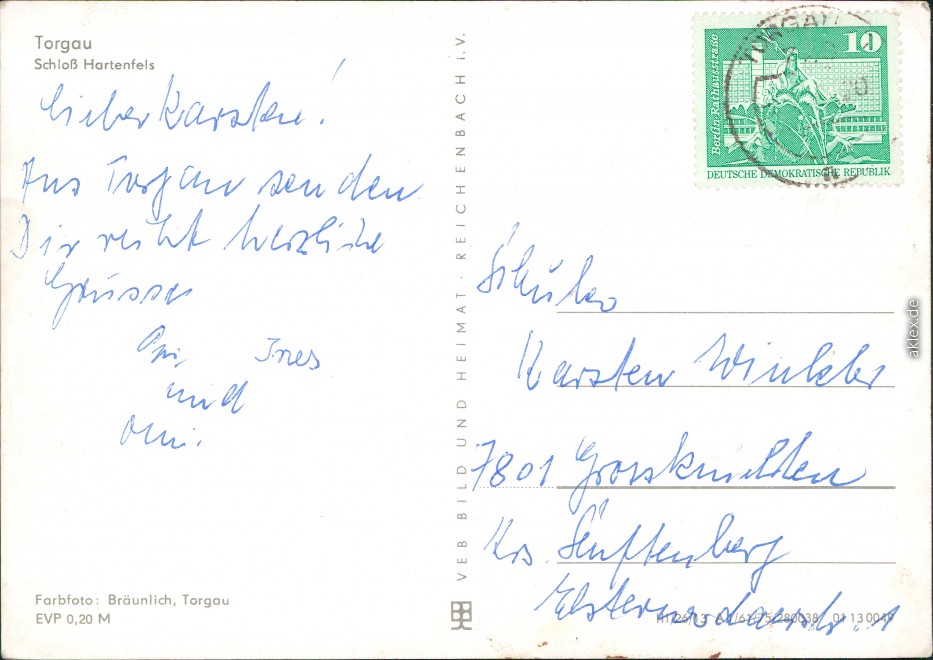 Torgau
Schloß Hartenfels
Lieber Karsten!
Aus Torgau senden
Dir recht herzliche
Grüsse
Opi, Ines
und
Omi.
VEB BILD UND HEIMAT · REICHENBACH i. V.
TORGAU
10
Berlin Rathausstraße
DEUTSCHE DEMOKRATISCHE REPUBLIK
Schüler
Karsten Winkler
7801 Grosskmehlen
Krs. Senftenberg
Elsterwerdaerstr. 1
Farbfoto: Bräunlich, Torgau
EVP 0,20 M
01 13 0049
aklex.de